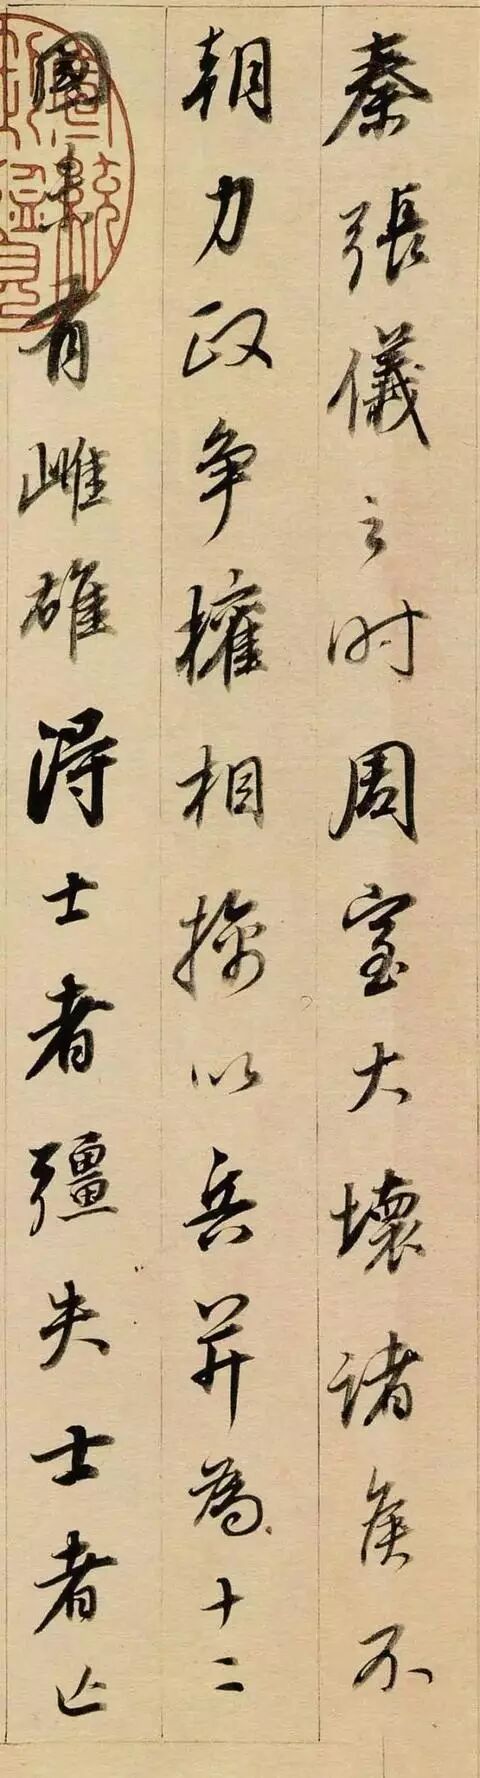 秦張儀之时周室大壞諸侯不
朝力政争權相擒以兵并為十二
國未有雌雄得士者彊失士者亡